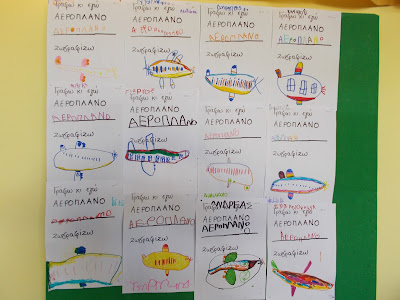 Γράφω κι εγώ
ΑΕΡΟΠΛΑΝΟ
Ζωγραφίζω
Γράφω κι εγώ
ΑΕΡΟΠΛΑΝΟ
Ζωγραφίζω
ΑΕΡΟΠΛΑΝΟ
ΑΕΡΟΠΛΑΝΟ
Ζωγραφίζω
Γράφω κι εγώ
ΑΕΡΟΠΛΑΝΟ
ΑΕΡΟΠΛΑΝΟ
Ζωγραφίζω
Γράφω κι εγώ
ΑΕΡΟΠΛΑΝΟ
ΑΕΡΟΠΛΑΝΟ
Ζωγραφίζω
Γράφω κι εγώ
ΑΕΡΟΠΛΑΝΟ
ΑΕΡΟΠΛΑΝΟ
Ζωγραφίζω
Γράφω κι εγώ
ΑΕΡΟΠΛΑΝΟ
Ζωγραφίζω
Γράφω κι εγώ
ΑΕΡΟΠΛΑΝΟ
Ζωγραφίζω
Γράφω κι εγώ
ΑΕΡΟΠΛΑΝΟ
Ζωγραφίζω
Γράφω κι εγώ
ΑΕΡΟΠΛΑΝΟ
ΑΕΡΟΠΛΑΝΟ
Ζωγραφίζω
ΑΝΔΡΕΑΣ
ΑΕΡΟΠΛΑΝΟ
ΑΕΡΟΠΛΑΝΟ
Ζωγραφίζω
Γράφω κι εγώ
ΑΕΡΟΠΛΑΝΟ
ΑΕΡΟΠΛΑΝΟ
Ζωγραφίζω